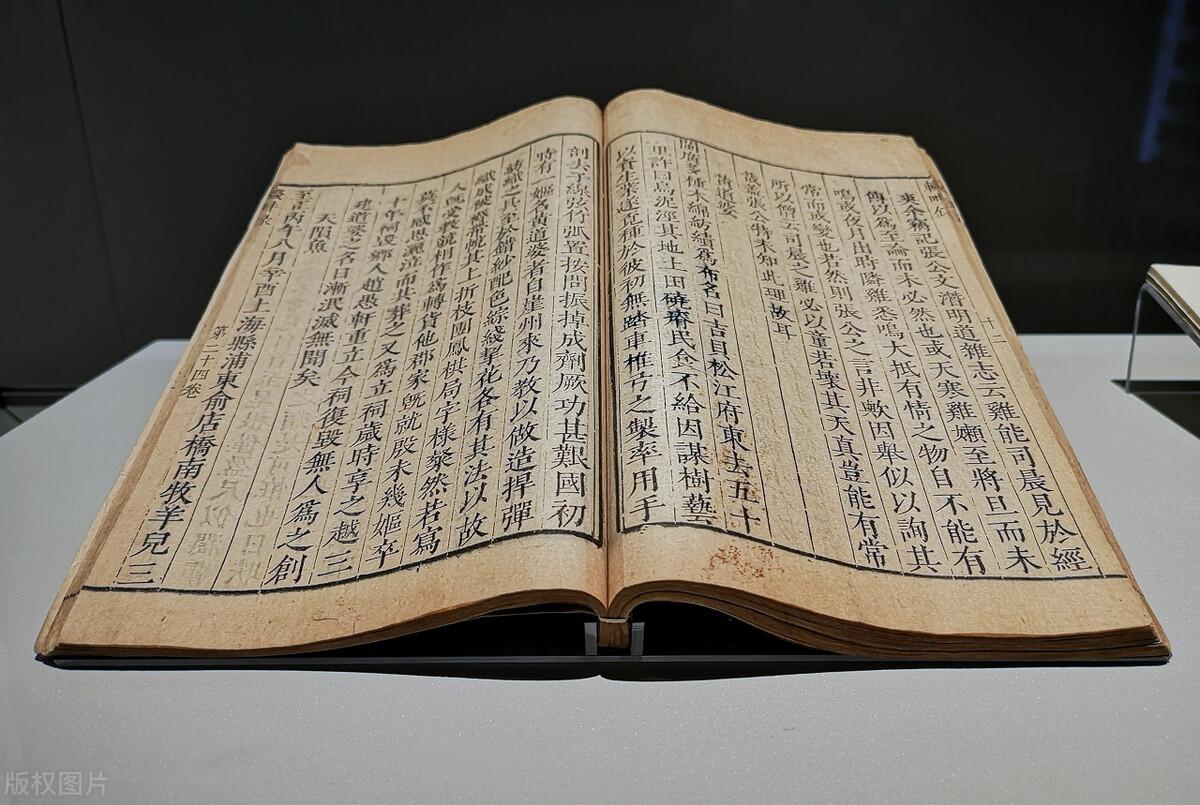 十二
東余記張公文潛明道雜志云雞能司晨見於經
傳以為至論而未必然也或天寒雞嬾至將旦而未
鳴或夜月出時隣雞悉鳴大抵有情之物自不能有
常而或變也若然則張公之言非歟因舉似以詢其
所以僧云司晨之雞必以童若壞其天真豈能有常
哉蓋張公特未知此理故耳
黃道婆
閩廣多種木綿紡績為布名曰吉貝松江府東去五十
里許曰烏泥涇其地土田磽瘠民食不給因謀樹藝
以資生業遂覓種於彼初無踏車椎弓之製率用手
剖去子線弦竹弧置按間振掉成劑厥功甚艱國初
時有一嫗名黃道婆者自崖州來乃教以做造捍彈
紡織之具至於錯紗配色綜綫挈花各有其法以故
織成被褥帶帨其上折枝團鳳棋局字樣粲然若寫
人既受教競相作為轉貨他郡家既就殷未幾嫗卒
莫不感恩灑泣而共葬之又為立祠歲時享之越三
十年祠毀鄉人趙愚軒重立今祠復毀無人為之創
建道婆之名日漸泯滅無聞矣
天隕魚
至正丙午八月辛酉上海縣浦東俞店橋南牧羊兒三
第二十四卷
版权图片